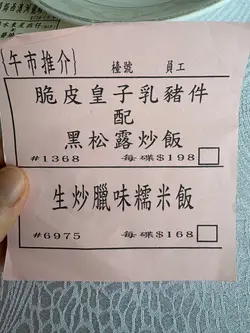 {午市推介} 檯號 員工
脆皮皇子乳豬件
配
黑松露炒飯
#1368 每碟$198
生炒臘味糯米飯
#6975 每碟$168